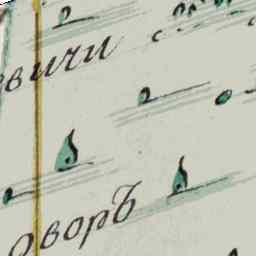 вичи
оворъ